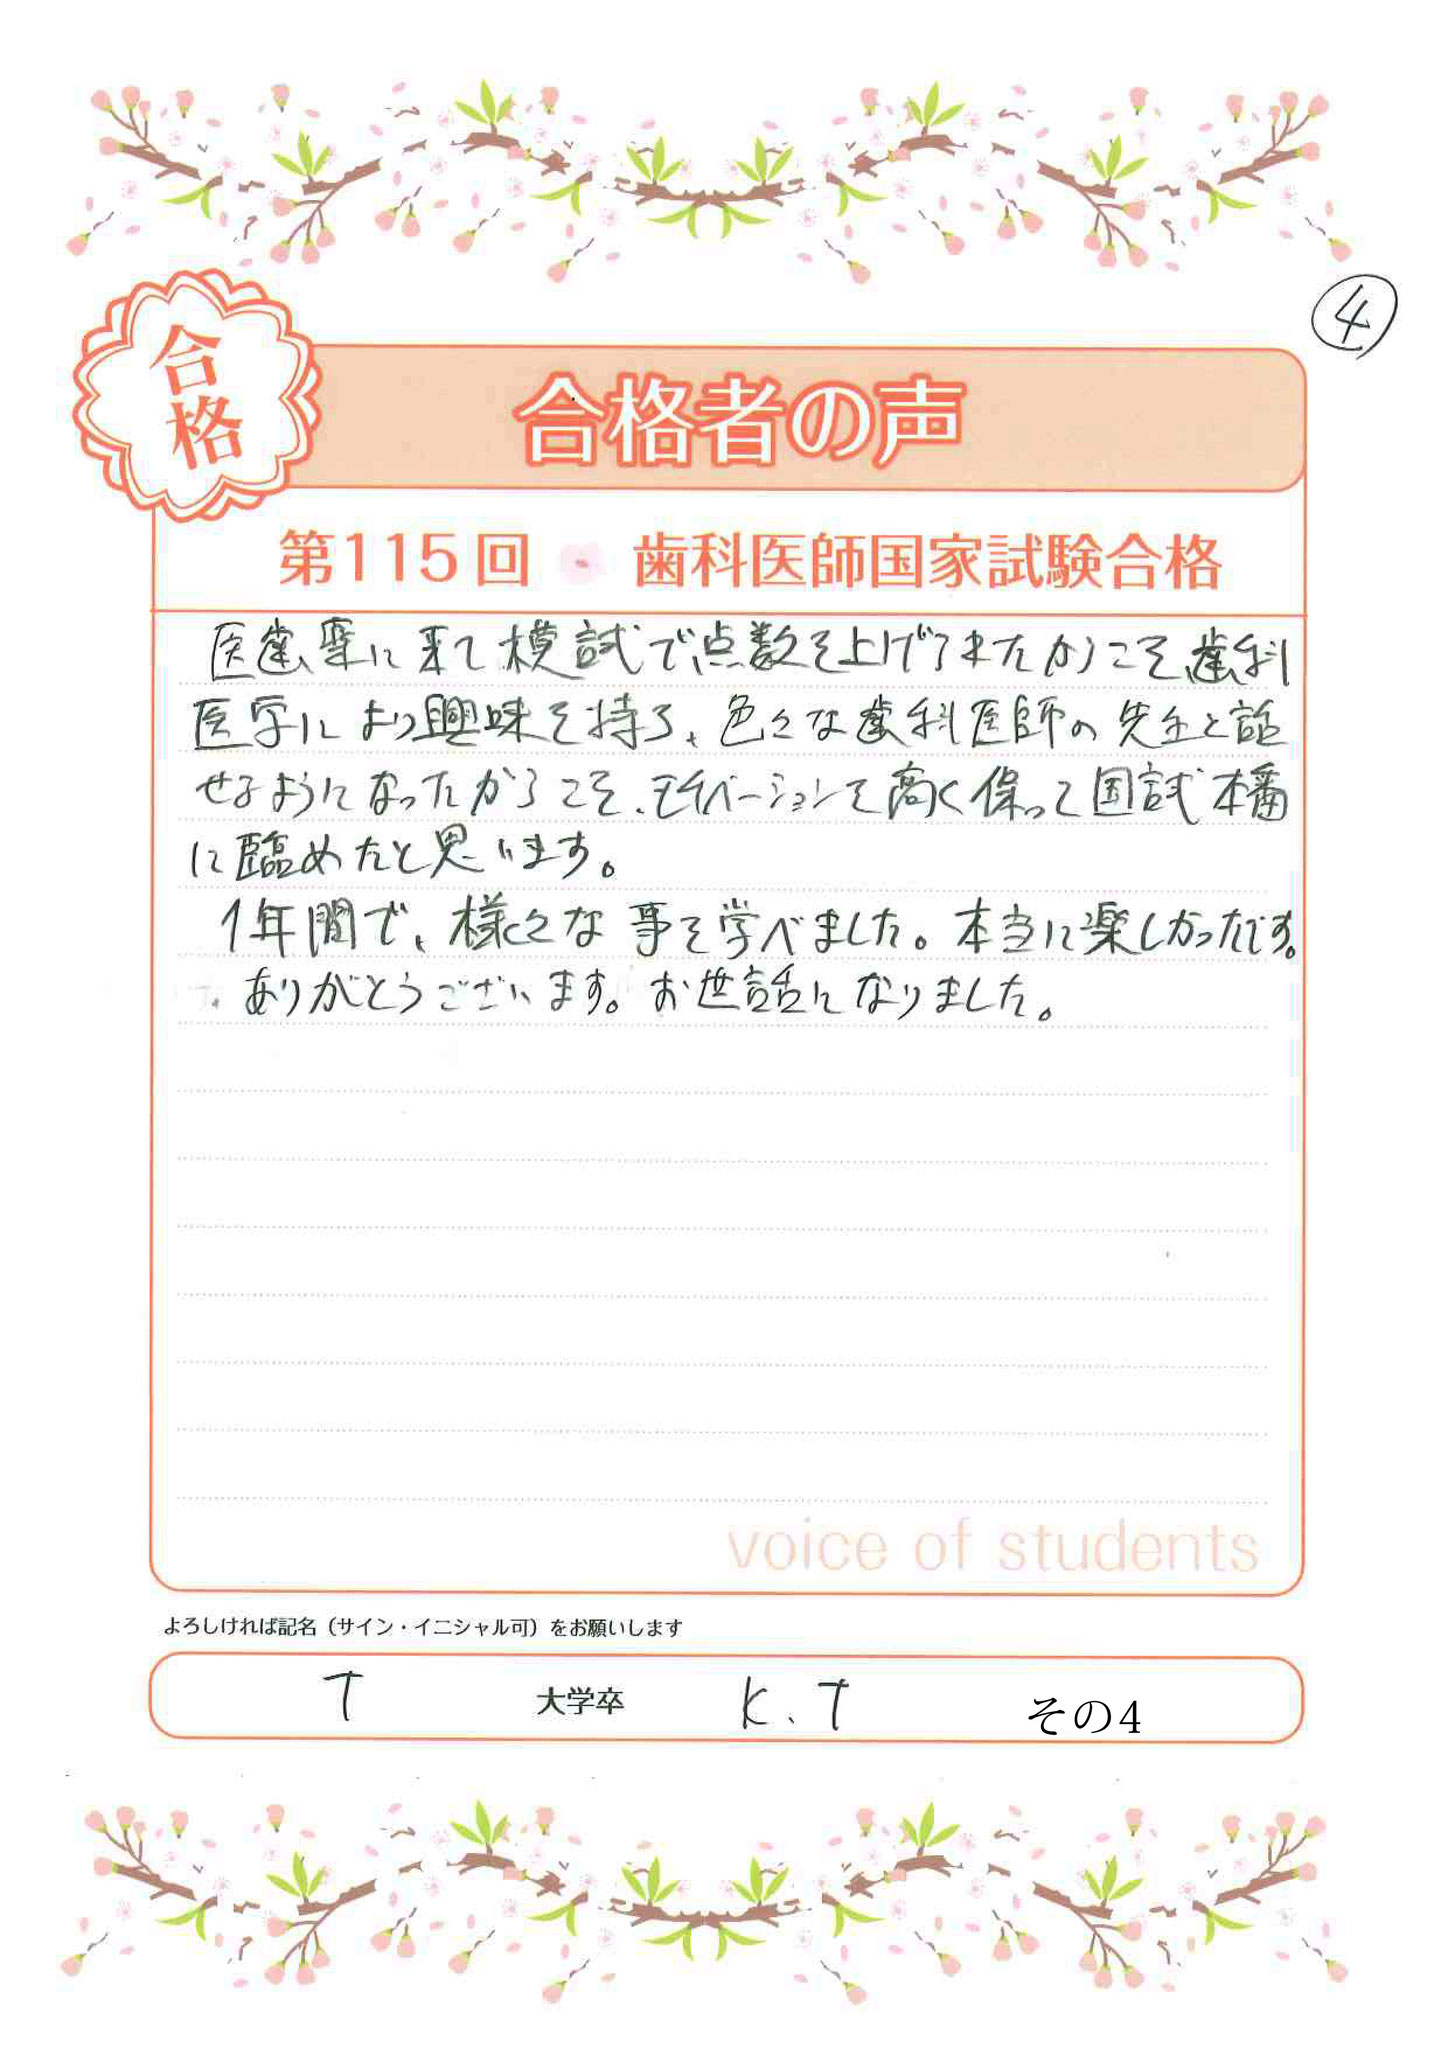 ④
合格
合格者の声
第115回 歯科医師国家試験合格
医歯薬に来て模試で点数を上げてきたからこそ、歯科
医学により興味を持ち、色々な歯科医師の先生と話
せるようになったからこそ、モチベーションを高く保って国試本番
に臨めたと思います。
1年間で、様々な事を学べました。本当に楽しかったです。
ありがとうございます。お世話になりました。
voice of students
よろしければ記名（サイン・イニシャル可）をお願いします
T 大学卒 K.T その4